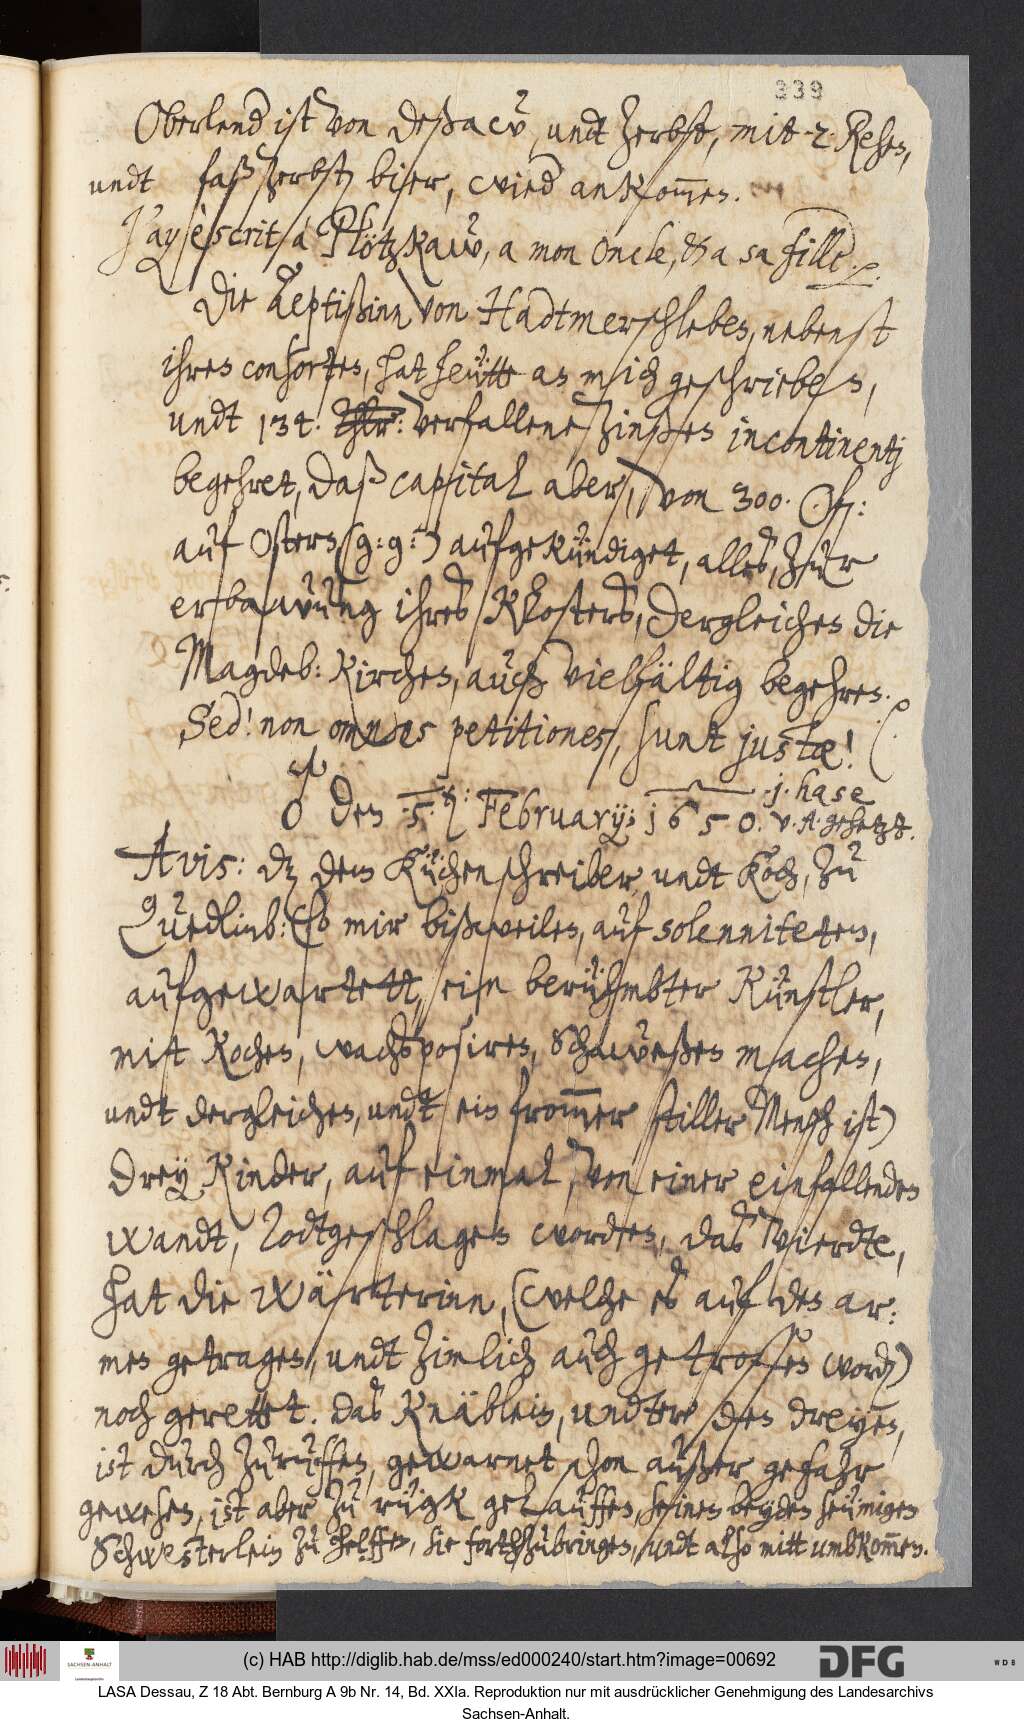 339
Oberlend ist von Deßaw, undt Zerbst, mit 2 Rehen,
undt faß Zerbster bier, wied ankommen.
J'ay escrit a Plötzkaw, a mon Oncle, & a sa fille.
Die Aeptißinn von Hadtmerschleben, nebenst
ihren consorten, hat heütte an mich geschrieben,
undt 134 Thlr: verfallene Zinßen incontinentj
begehret, daß capital aber, von 300
auf Ostern (g: g:) aufgekündiget, alles, zur
erbawung ihres Klosters, dergleichen die
Magdeb: Kirchen, auch vielfältig begehren.
Sed! non omnes petitiones, sunt justæ!
♂ den 5. February: 1650.
j. hase
v. A. gehetzt.
Avis: dz dem Küchenschreiber undt Koch, zu
Quedlinb: (so mir bißweilen, auf solenniteten,
aufgewartett, ein berühmbter Künstler,
mit Kochen, wachsposiren, Schaweßen machen,
undt dergleichen, undt ein frommer stiller Mensch ist)
drey Kinder, auf einmal, von einer einfallenden
wandt, Todtgeschlagen worden, das vierdte,
hat die Wärterinn, (welche es auf den ar-
men getragen, undt zimlich auch getroffen worden)
noch gerettet. Das Knäblein, undter den dreyen,
ist durch zuruffen, gewarnet schon außer gefahr
gewesen, ist aber zu rügk gelauffen, seinen beyden seumigen
Schwesterlein zu helffen, sie forthzubringen, undt also mitt umbkommen.
SACHSEN-ANHALT
(c) HAB http://diglib.hab.de/mss/ed000240/start.htm?image=00692
DFG
WDB
LASA Dessau, Z 18 Abt. Bernburg A 9b Nr. 14, Bd. XXIa. Reproduktion nur mit ausdrücklicher Genehmigung des Landesarchivs
Sachsen-Anhalt.